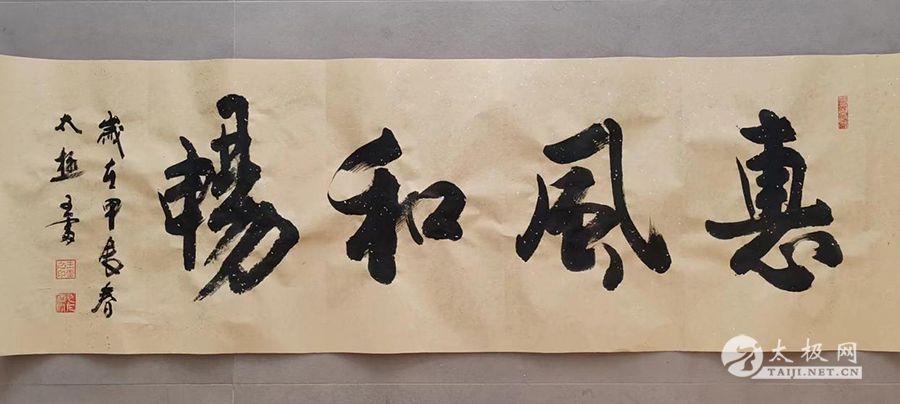 惠風和暢
歲在甲辰春
太極
太极网
TAIJI.NET.CN